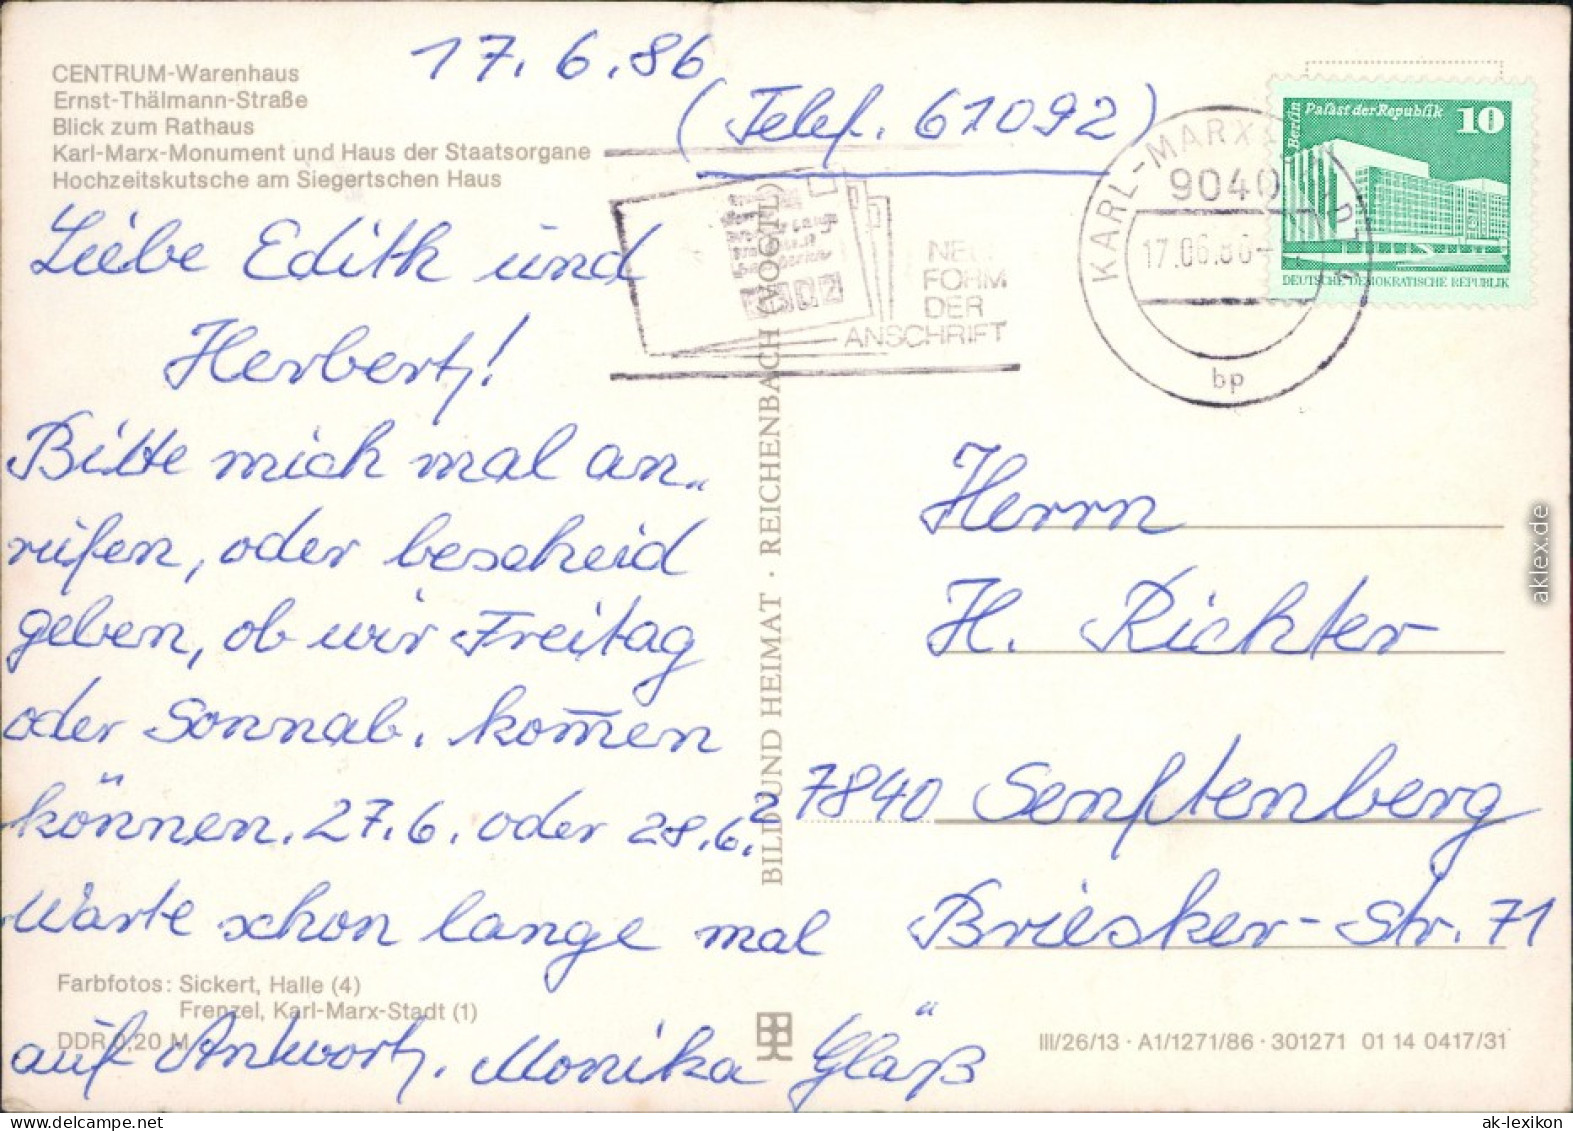 CENTRUM-Warenhaus
Ernst-Thälmann-Straße
Blick zum Rathaus
Karl-Marx-Monument und Haus der Staatsorgane
Hochzeitskutsche am Siegertschen Haus
17. 6. 86
(Telef. 61092)
Liebe Edith und
Herbert!
Bitte mich mal an„
rufen, oder bescheid
geben, ob wir Freitag
oder Sonnab. kom̅en
können. 27.6. oder 28.6.?
Warte schon lange mal
auf Antwort. Monika Gläß
Farbfotos: Sickert, Halle (4)
Frenzel, Karl-Marx-Stadt (1)
DDR 0,20 M
BILD UND HEIMAT · REICHENBACH (VOGTL)
FORM
DER
ANSCHRIFT
KARL-MARX
9040
17.06.86
bp
Berlin Palast der Republik 10
DEUTSCHE DEMOKRATISCHE REPUBLIK
Herrn
H. Richter
7840 Senftenberg
Briesker-Str. 71
III/26/13 · A1/1271/86 · 301271 01 14 0417/31
aklex.de
ak-lexikon